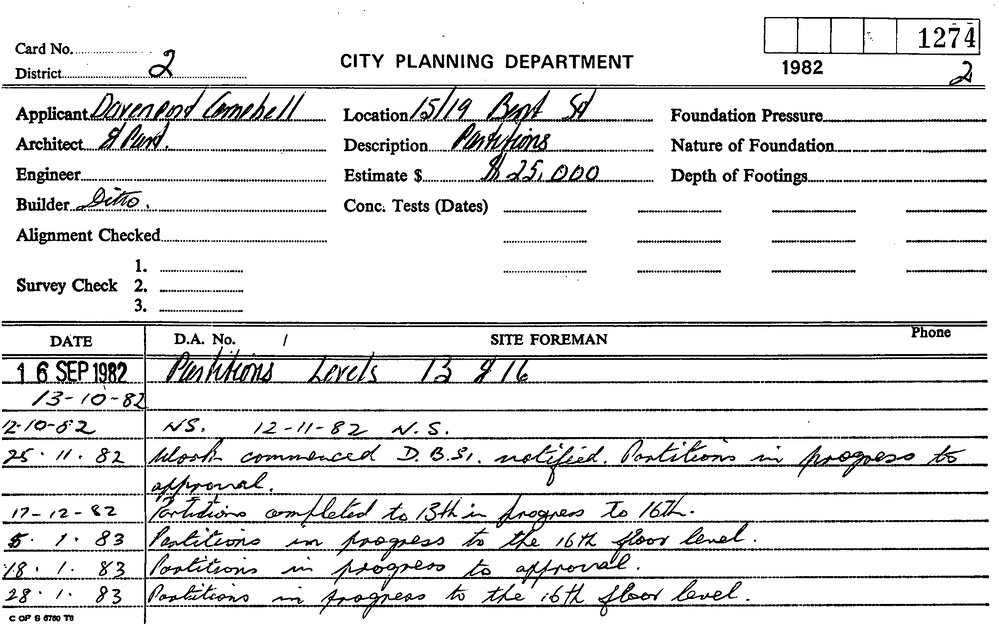 Card No. 1274
District 2 CITY PLANNING DEPARTMENT 1982 2
Applicant Davenport Campbell Location 15/19 Bent St Foundation Pressure
Architect & Part. Description Partitions Nature of Foundation
Engineer Estimate $ $25,000 Depth of Footings
Builder Ditto. Conc. Tests (Dates)
Alignment Checked
1.
Survey Check 2.
3.
DATE D.A. No. / SITE FOREMAN Phone
16 SEP 1982 Partitions Levels 13 & 16
13-10-82
12-10-82 NS. 12-11-82 N.S.
25.11.82 Work commenced D.B.S. notified. Partitions in progress to
approval.
17-12-82 Partitions completed to 13th in progress to 16th.
5.1.83 Partitions in progress to the 16th floor level.
18.1.83 Partitions in progress to approval.
28.1.83 Partitions in progress to the 16th floor level.
C OF S 6780 T8